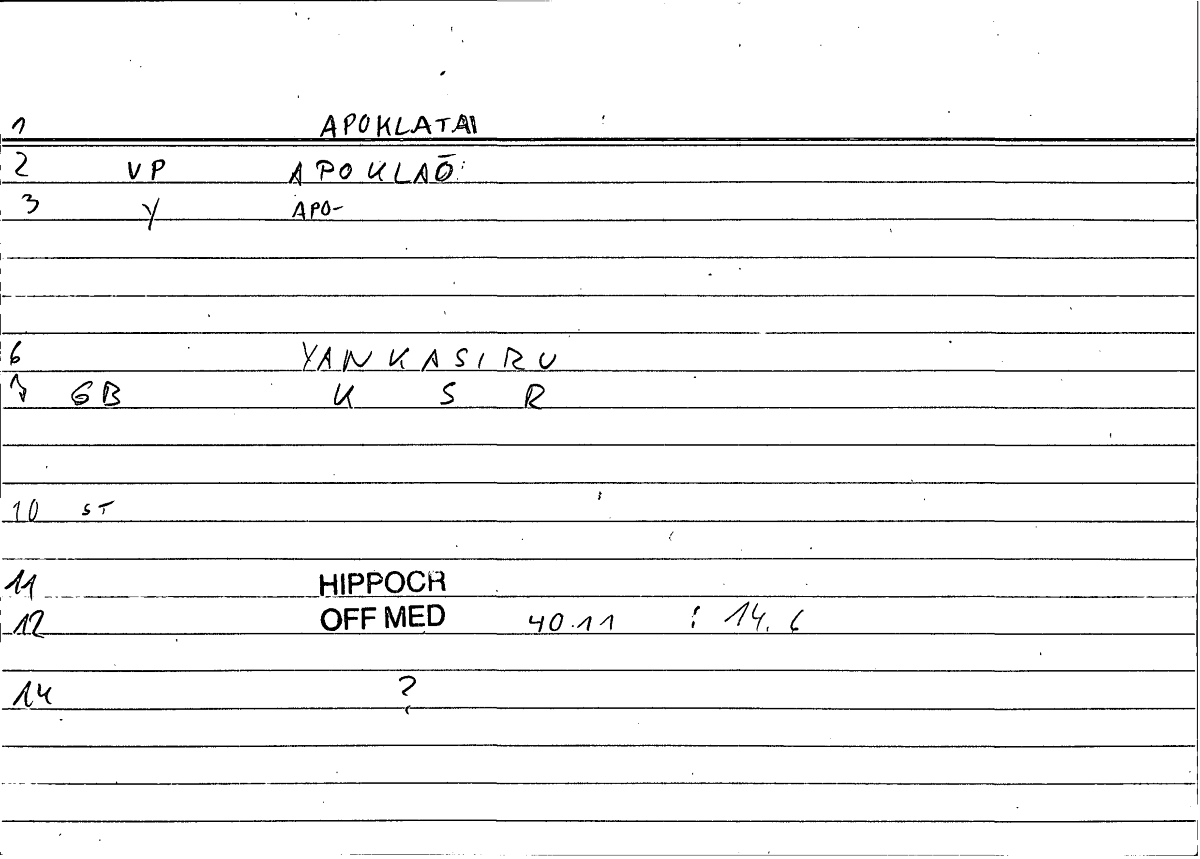 1 APOKLATAI
2 VP APOKLAŌ:
3 Y APO-
6 YANKASIRU
7 GB K S R
10 ST
11 HIPPOCR
12 OFF MED 40.11 : 14.6
14 ?